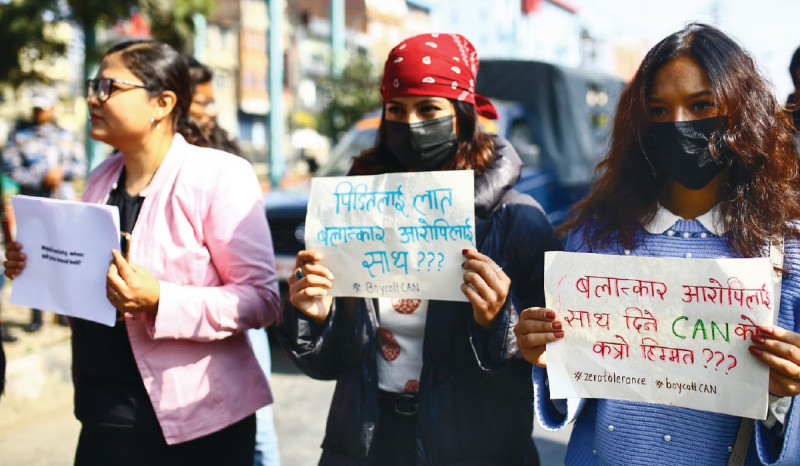 society, when
will you
पिडितलाई लात
बलात्कार आरोपिलाई
साथ ???
# BOYCOTTCAN
बलात्कार आरोपिलाई
साथ दिने CAN को
कत्रो हिम्मत ???
#zerotolerance #boycottCAN